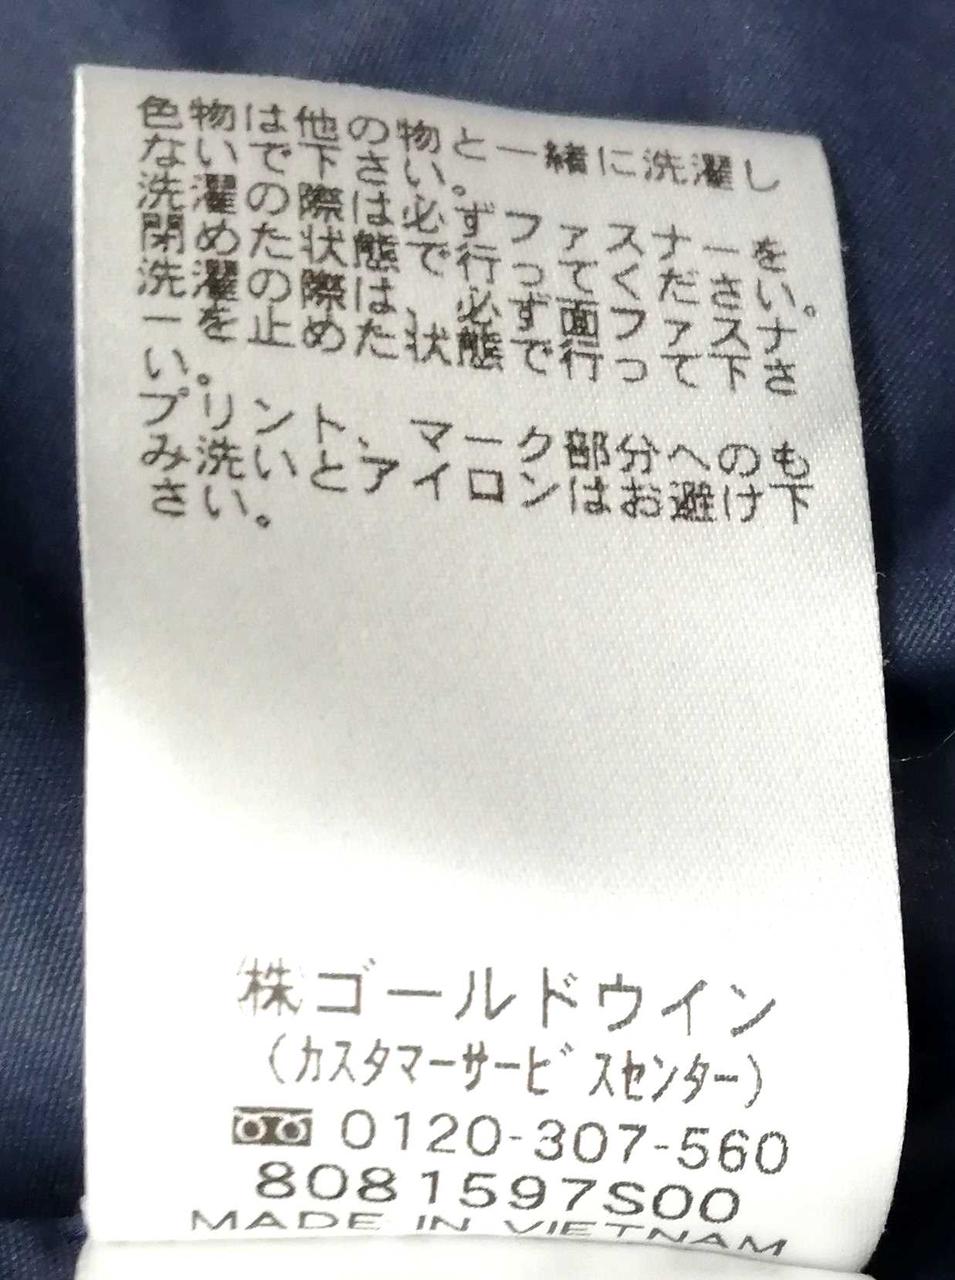 色物は他の物と一緒に洗濯し
ないで下さい。
洗濯の際は必ずファスナーを
閉めた状態で行ってください。
洗濯の際は、必ず面ファスナ
ーを止めた状態で行って下さ
い。
プリント、マーク部分へのも
み洗いとアイロンはお避け下
さい。
(株)ゴールドウイン
(カスタマーサービスセンター)
0120-307-560
8081597S00
MADE IN VIETNAM